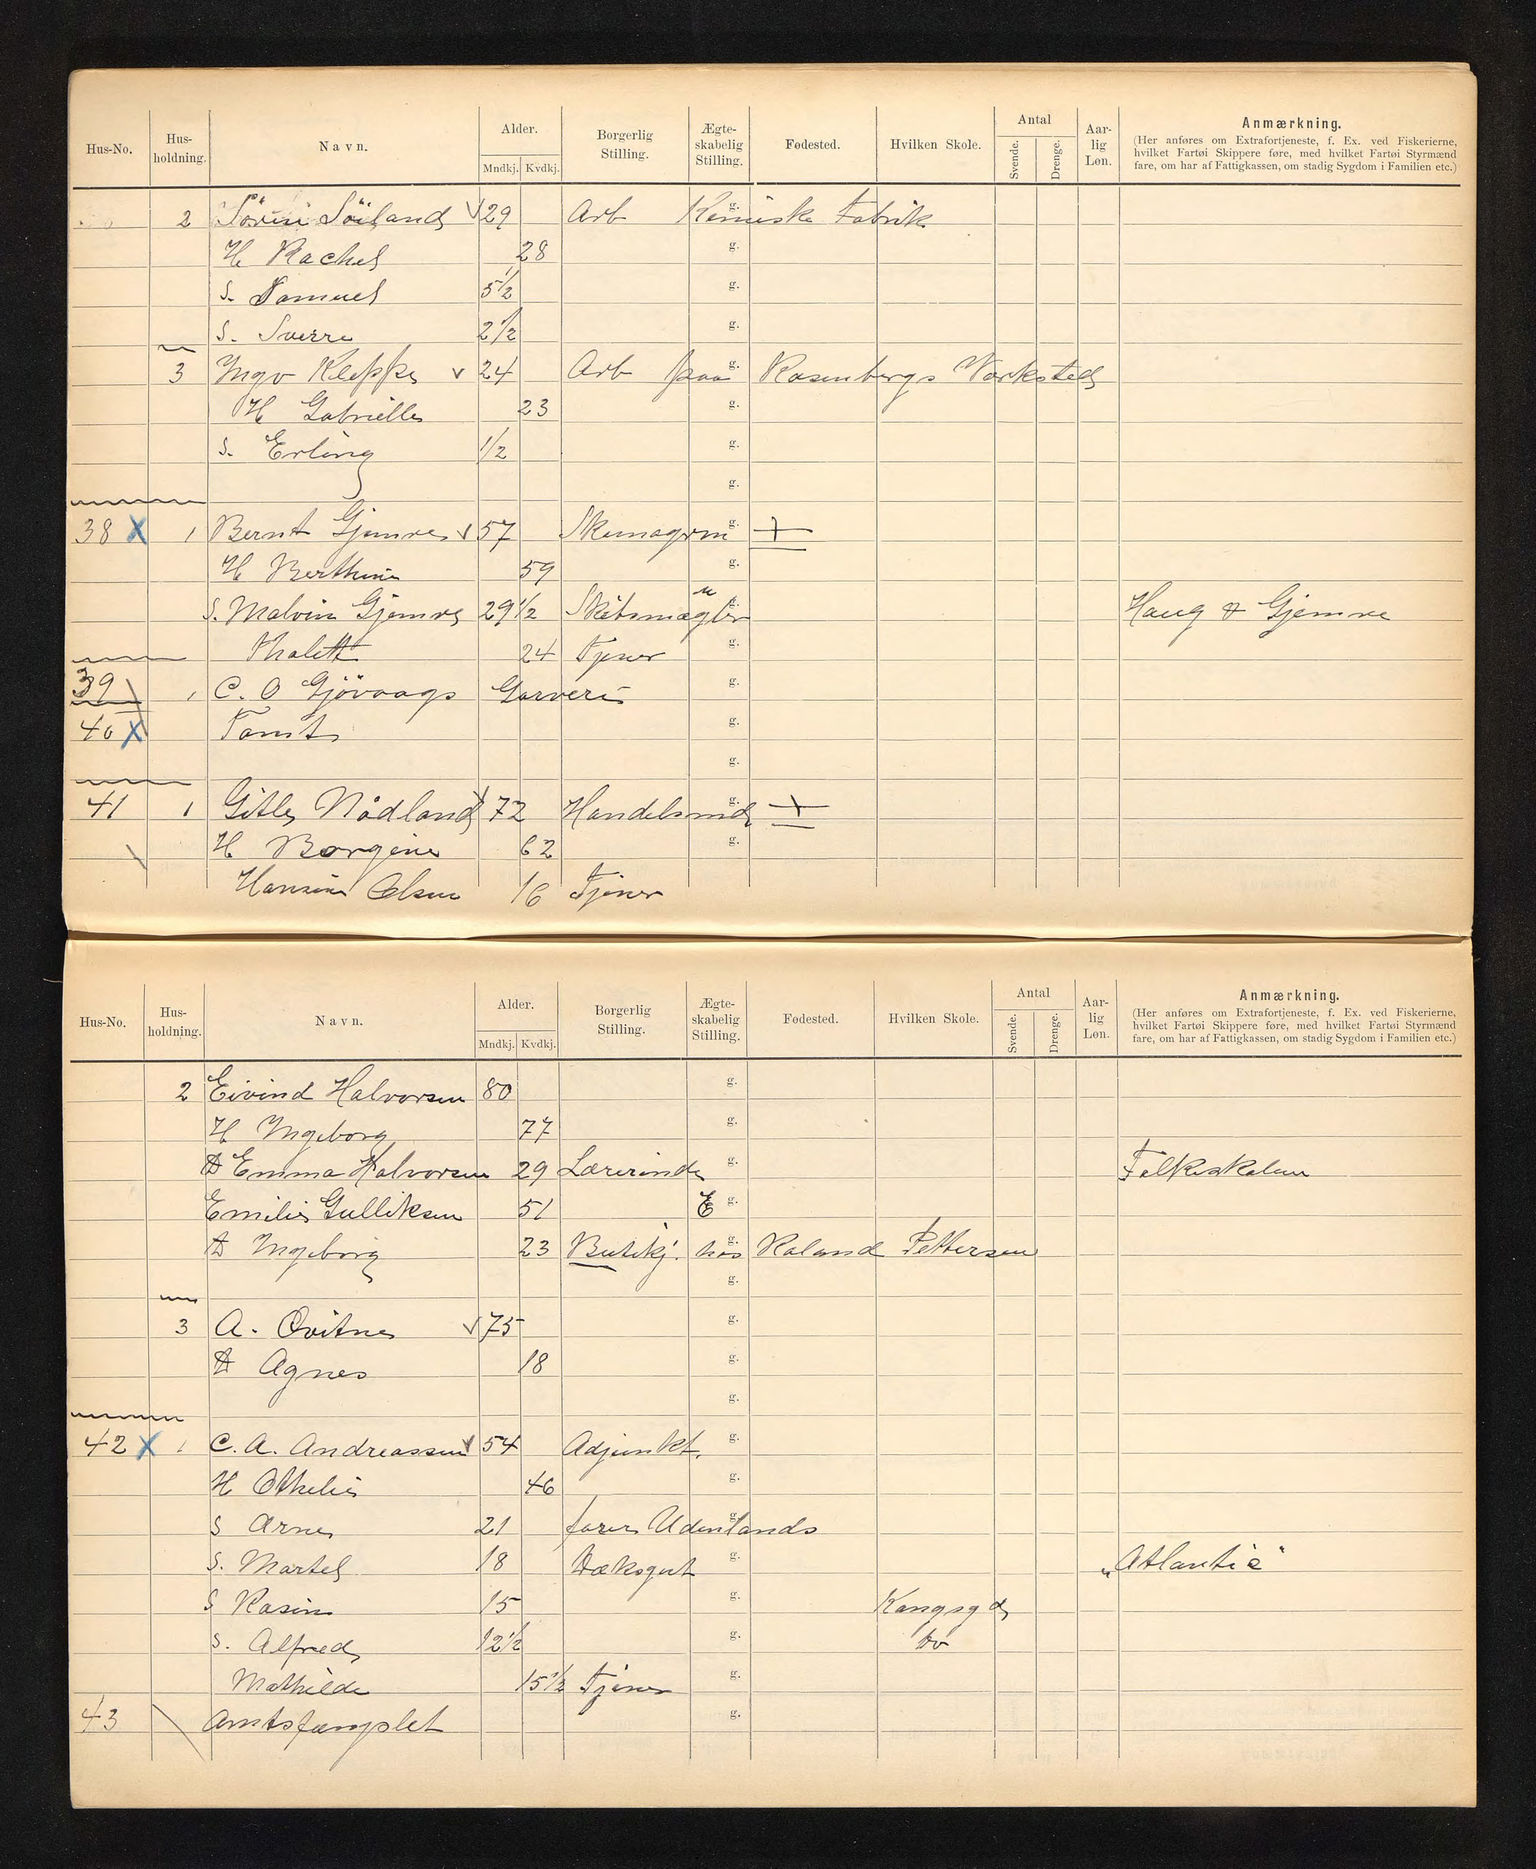 Hus-No. Hus-holdning. Navn. Alder. Mndkj. Kvdkj. Borgerlig Stilling. Ægte-skabelig Stilling. Fødested. Hvilken Skole. Antal Svende. Drenge. Aar-lig Løn. Anmærkning.
(Her anføres om Extrafortjeneste, f. Ex. ved Fiskerierne,
hvilket Fartøi Skippere føre, med hvilket Fartøi Styrmænd
fare, om har af Fattigkassen, om stadig Sygdom i Familien etc.)
2 Sören Söiland 29 Arb g. Kemiske Fabrik
H Rachel 28 g.
S. Samuel 5 1/2 g.
S. Sverre 2 1/2 g.
3 Yngv Kleppe 24 Arb paa g. Rosenbergs Værksted
H Gabrielle 23 g.
S. Erling 1/2 g.
g.
38 X 1 Bernt Gjemre 57 Skomagerm g. +
H Berthine 59 g.
S. Malvin Gjemre 29 1/2 Skibsmægler u g. Haug & Gjemre
Thalett 24 Tjener g.
39 1 C. O Gjövaags Garveri g.
40 X Tomt g.
g.
41 1 Gitle Nådland 72 Handelsmd g. +
H Borgine 62 g.
Hansine Olsen 16 Tjener
Hus-No. Hus-holdning. Navn. Alder. Mndkj. Kvdkj. Borgerlig Stilling. Ægte-skabelig Stilling. Fødested. Hvilken Skole. Antal Svende. Drenge. Aar-lig Løn. Anmærkning.
(Her anføres om Extrafortjeneste, f. Ex. ved Fiskerierne,
hvilket Fartøi Skippere føre, med hvilket Fartøi Styrmænd
fare, om har af Fattigkassen, om stadig Sygdom i Familien etc.)
2 Eivind Halvorsen 80 g.
H Ingeborg 77 g.
D Emma Halvorsen 29 Lærerinde g. Folkeskolen
Emilie Gulliksen 51 E g.
D Ingeborg 23 Butikj. hos g. Roland Pettersen
g.
3 A. Qvitnes 75 g.
D Agnes 18 g.
g.
42 X 1 C. A. Andreassen 54 Adjunkt. g.
H Othelie 46 g.
S Arne 21 farer Udenlands g.
S. Martel 18 Dæksgut g. „Atlantic"
S Rasin 15 g. Kongsgd
S. Alfred 12 1/2 g. Do
Mathilde 15 1/2 Tjener g.
43 Amtsfængslet g.